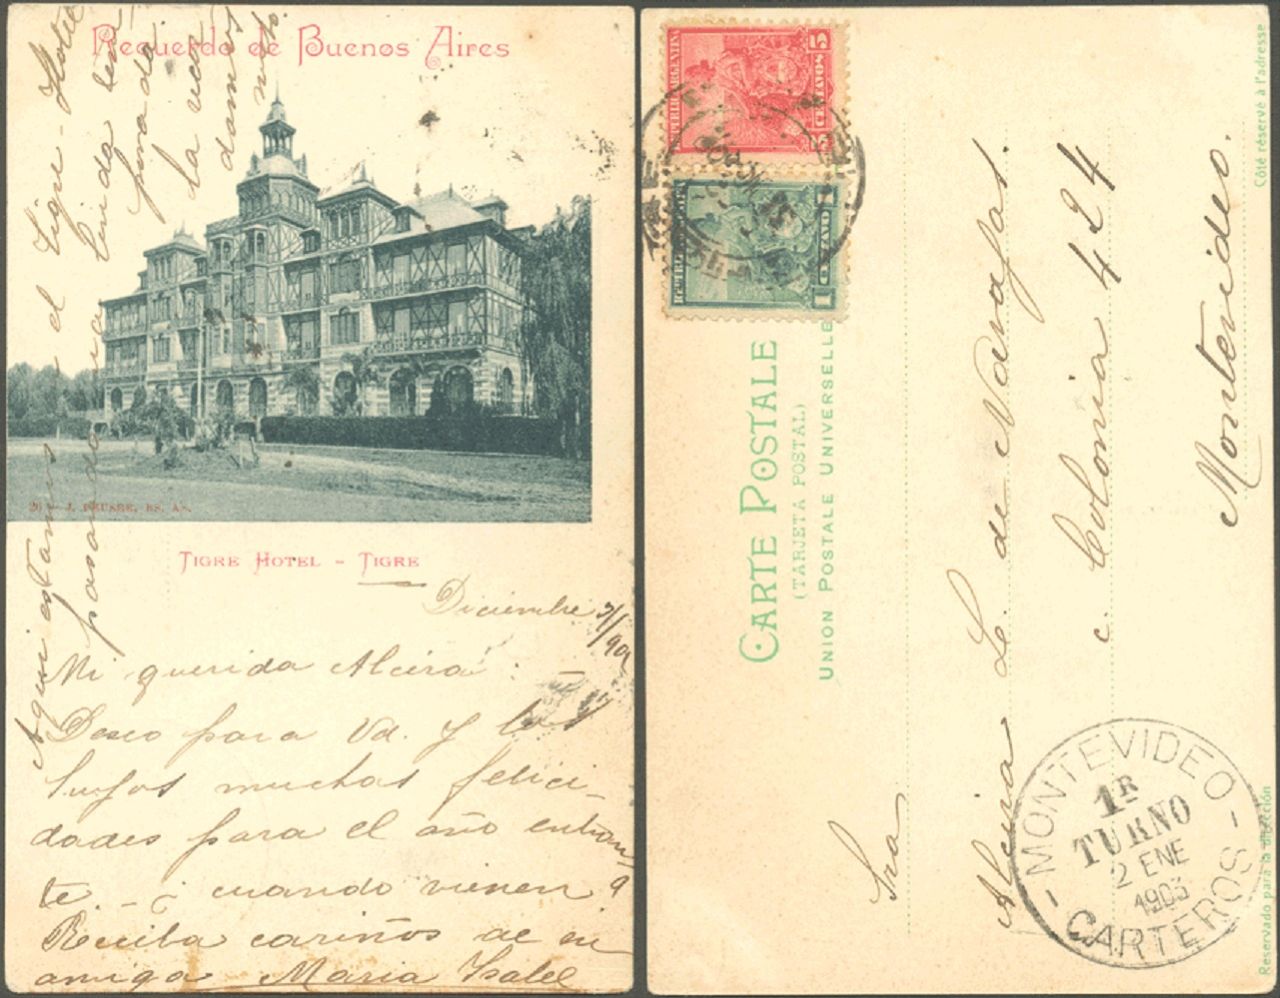 Recuerdo de Buenos Aires
20 - J. PEUSER, BS. AS.
TIGRE HOTEL - TIGRE
Diciembre 31/902
Mi querida Alcira: -
Deseo para Vd. y los
suyos muchas felici-
dades para el año entran
te. - ¿ cuando vienen?
Reciba cariños de su
amiga Maria Isabel
Aqui estamos en el Tigre-Hotel
pasando una linda tem
porada
la
damos
REPUBLICA ARGENTINA
5 CENTAVOS 5
REPUBLICA
1 CENTAVO 1
CARTE POSTALE
(TARJETA POSTAL)
UNION POSTALE UNIVERSELLE
Côté réservé à l'adresse
Reservado para la dirección
Sra
Alcira L. de Narafas.
c. Colonia 424
Montevideo.
MONTEVIDEO
1R
TURNO
2 ENE
1903
CARTEROS